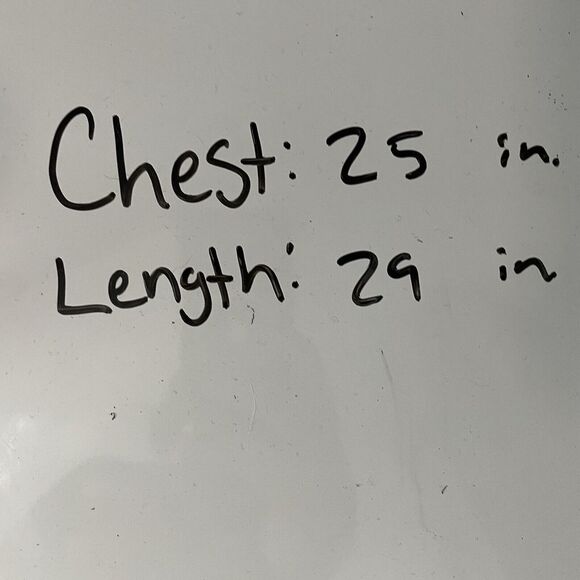 Chest: 25 in.
Length: 29 in